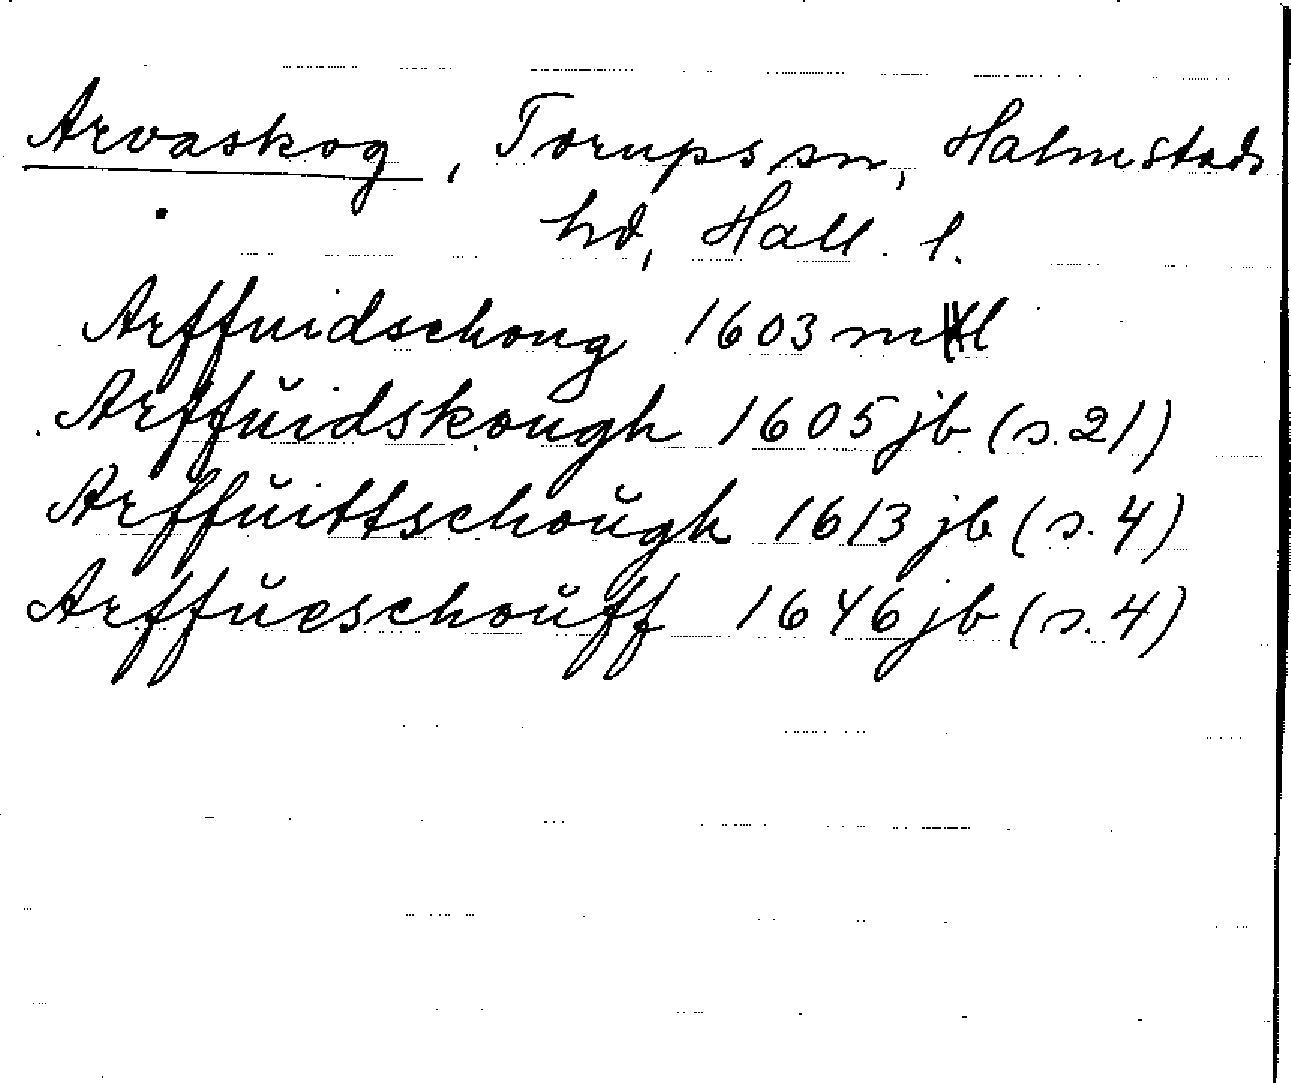 Arvaskog, Torups sn, Halmstads
hd, Hall. l.
Arffuidschoug 1603 ml
Arffŭidskough 1605 jb (s. 21)
Arffŭittschoŭgh 1613 jb (s. 4)
Arffŭeschoŭff 1646 jb (s. 4)